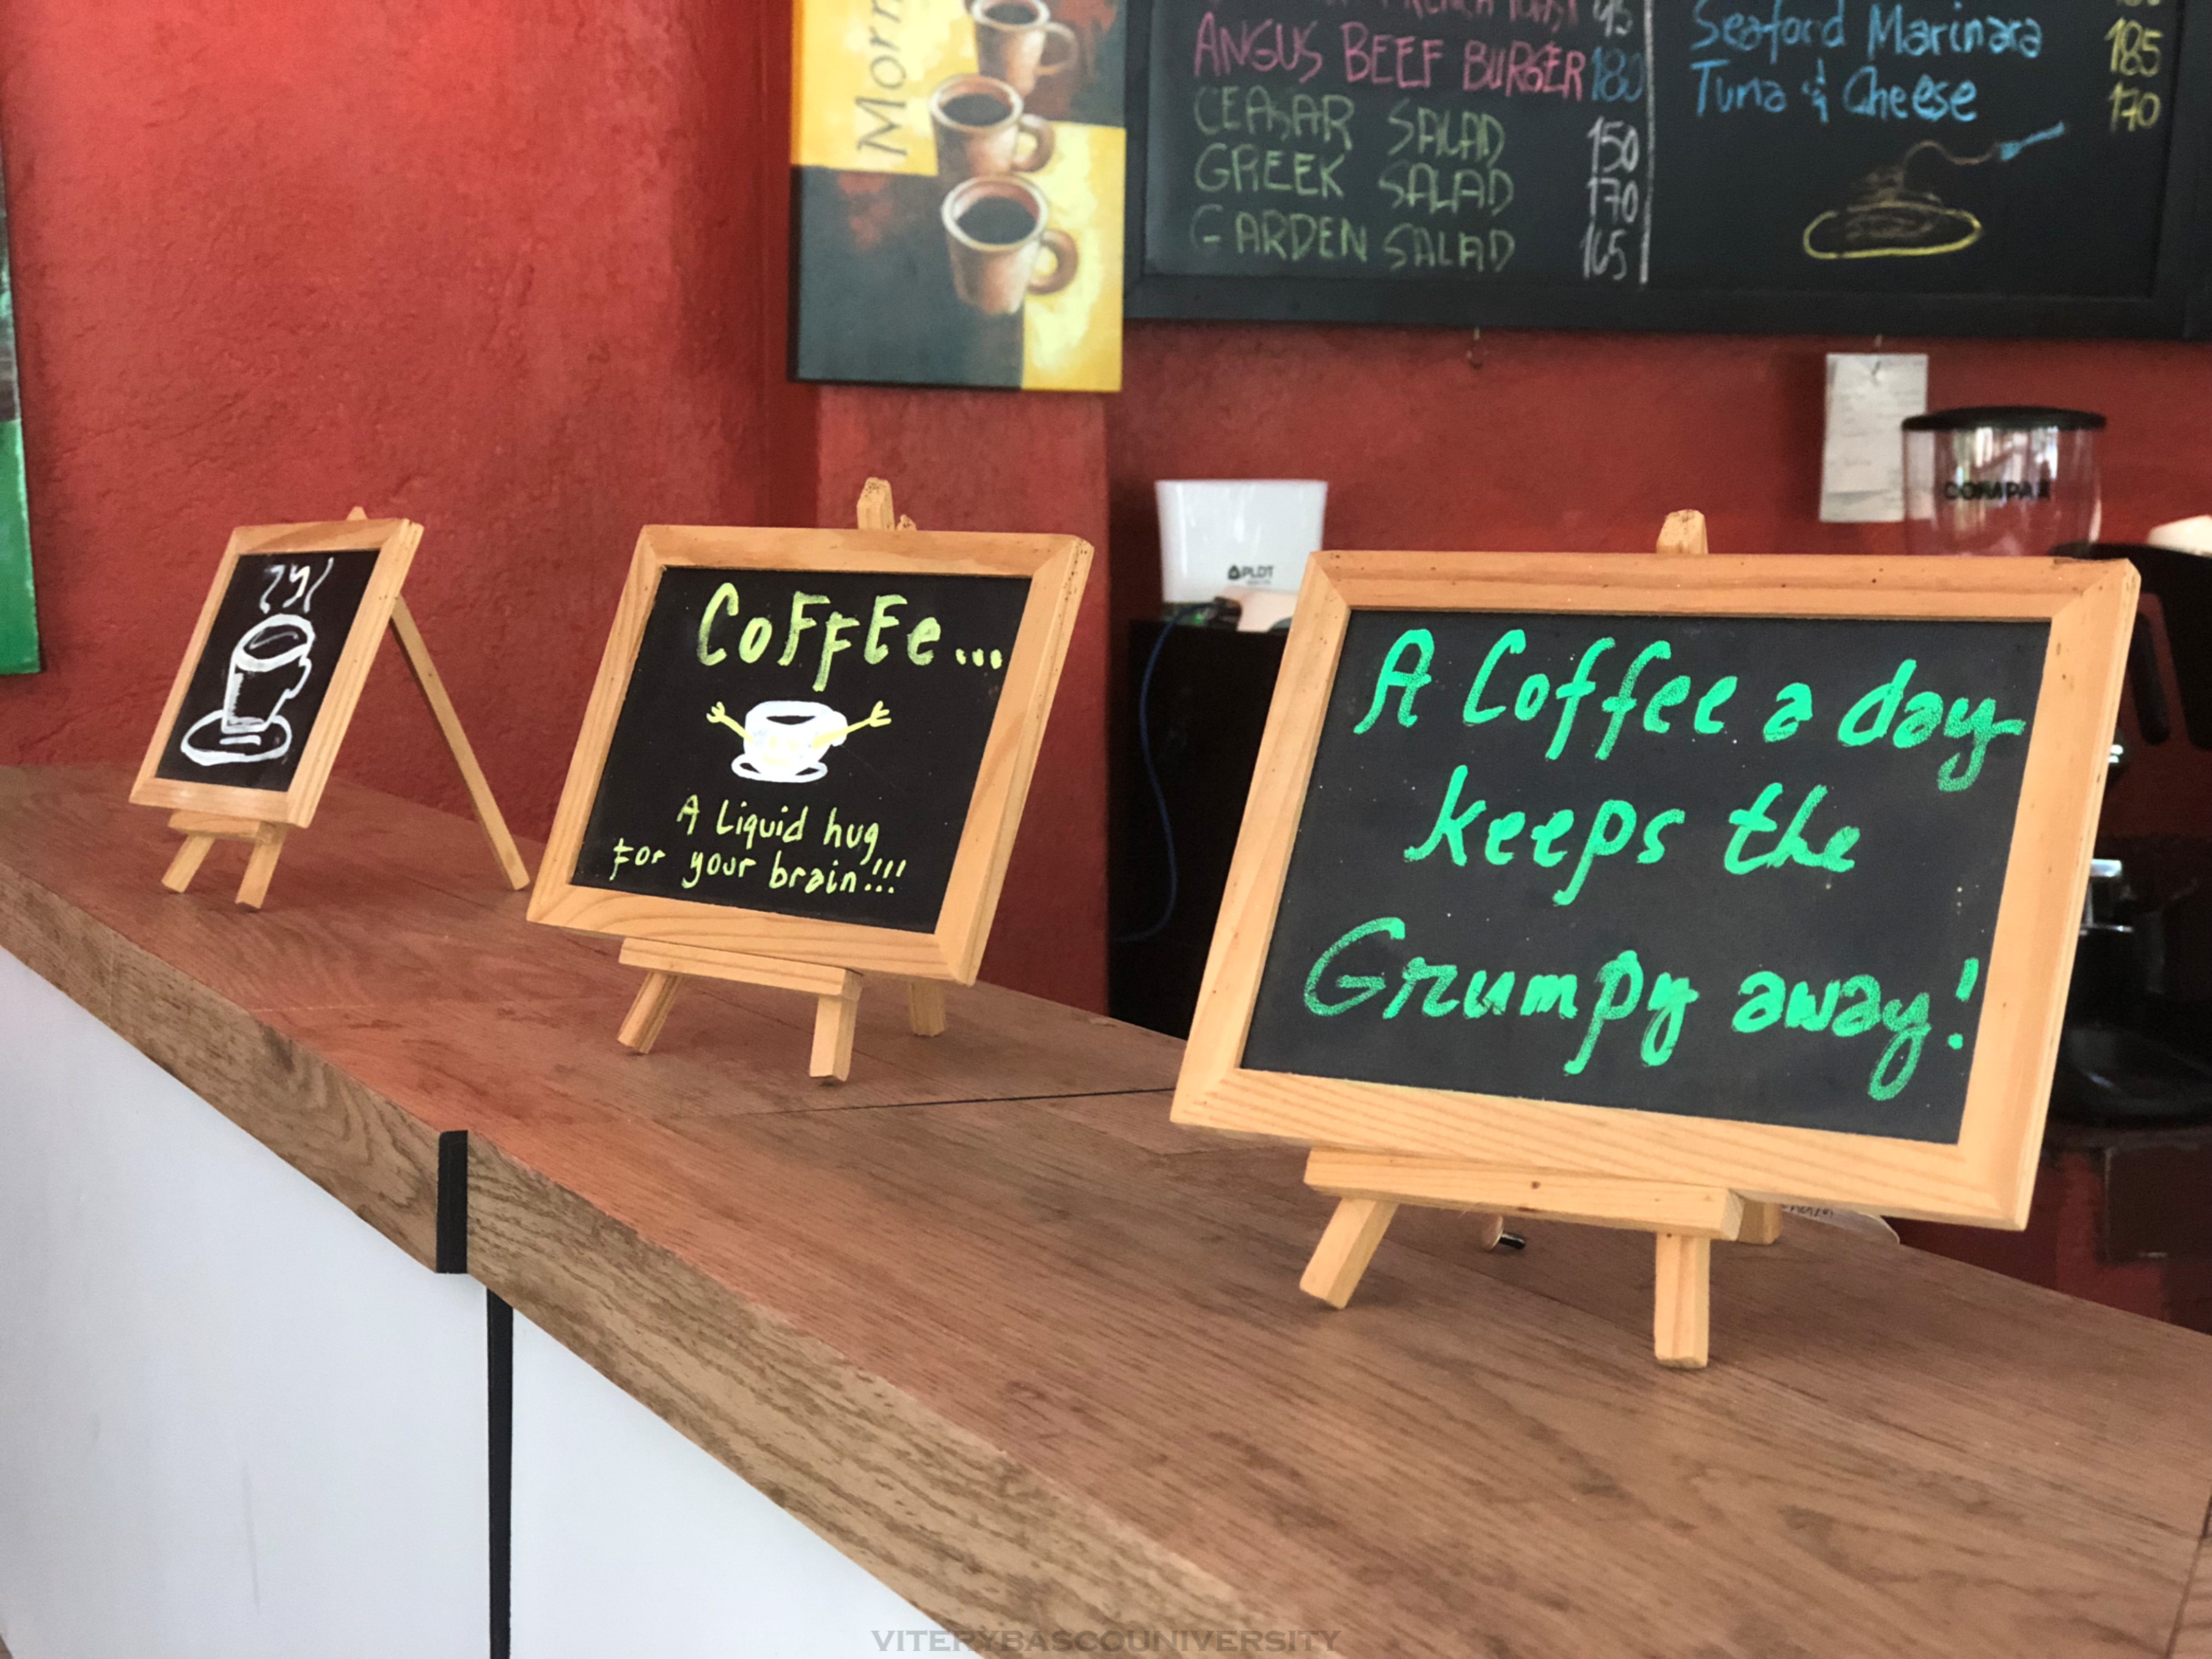 Morn
FRENCH TOAST 95
ANGUS BEEF BURGER 180
CEASAR SALAD 150
GREEK SALAD 170
GARDEN SALAD 165
Seaford Marinara 185
Tuna & Cheese 170
PLDT
COFFEE...
A Liquid hug
For your brain!!!
A Coffee a day
keeps the
Grumpy away!
VITERYBASCOUNIVERSITY